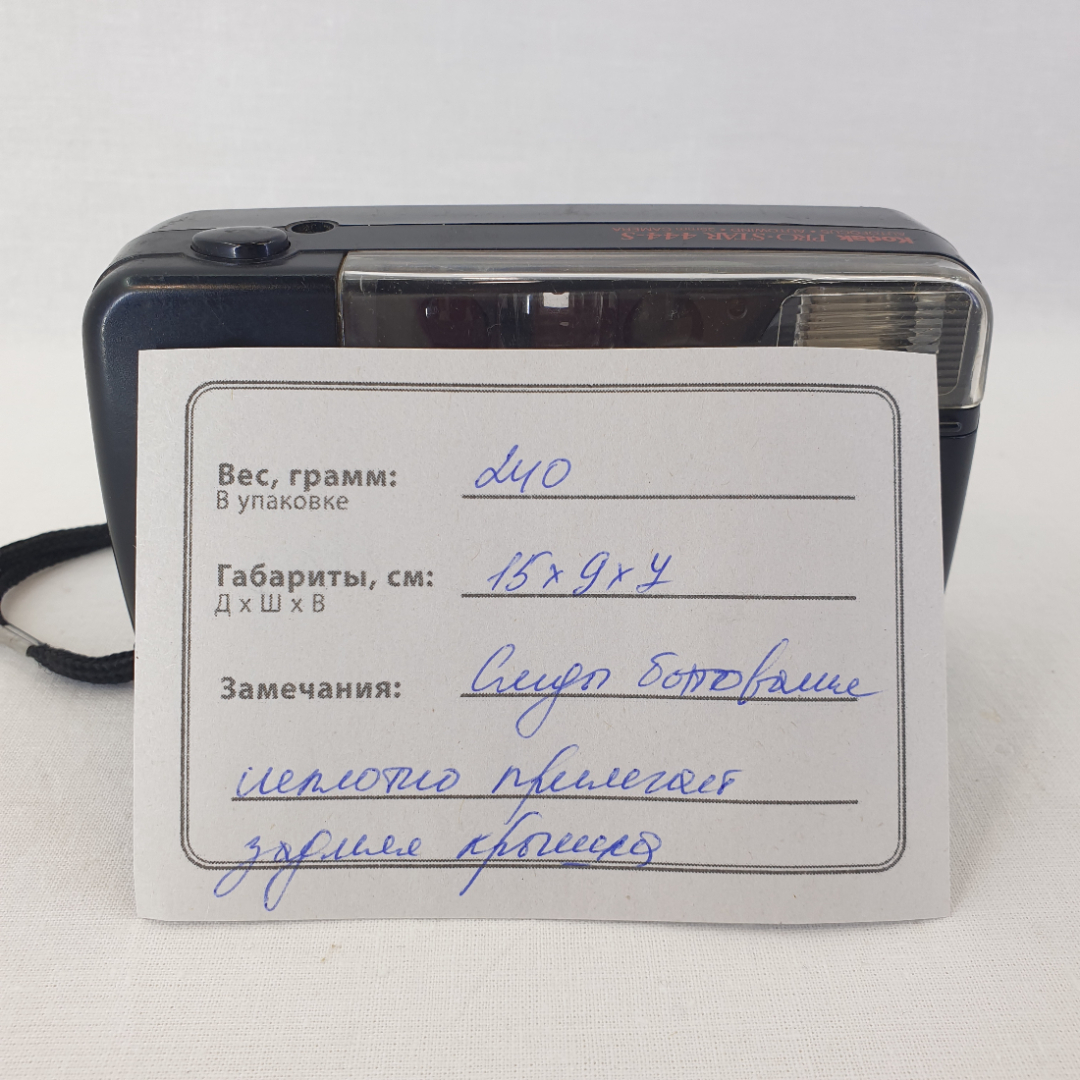 Kodak PRO-STAR 444-S
Вес, грамм: 240
В упаковке
Габариты, см: 15 х 9 х 7
Д х Ш х В
Замечания: Следы бытования
неплотно прилегает
задняя крышка